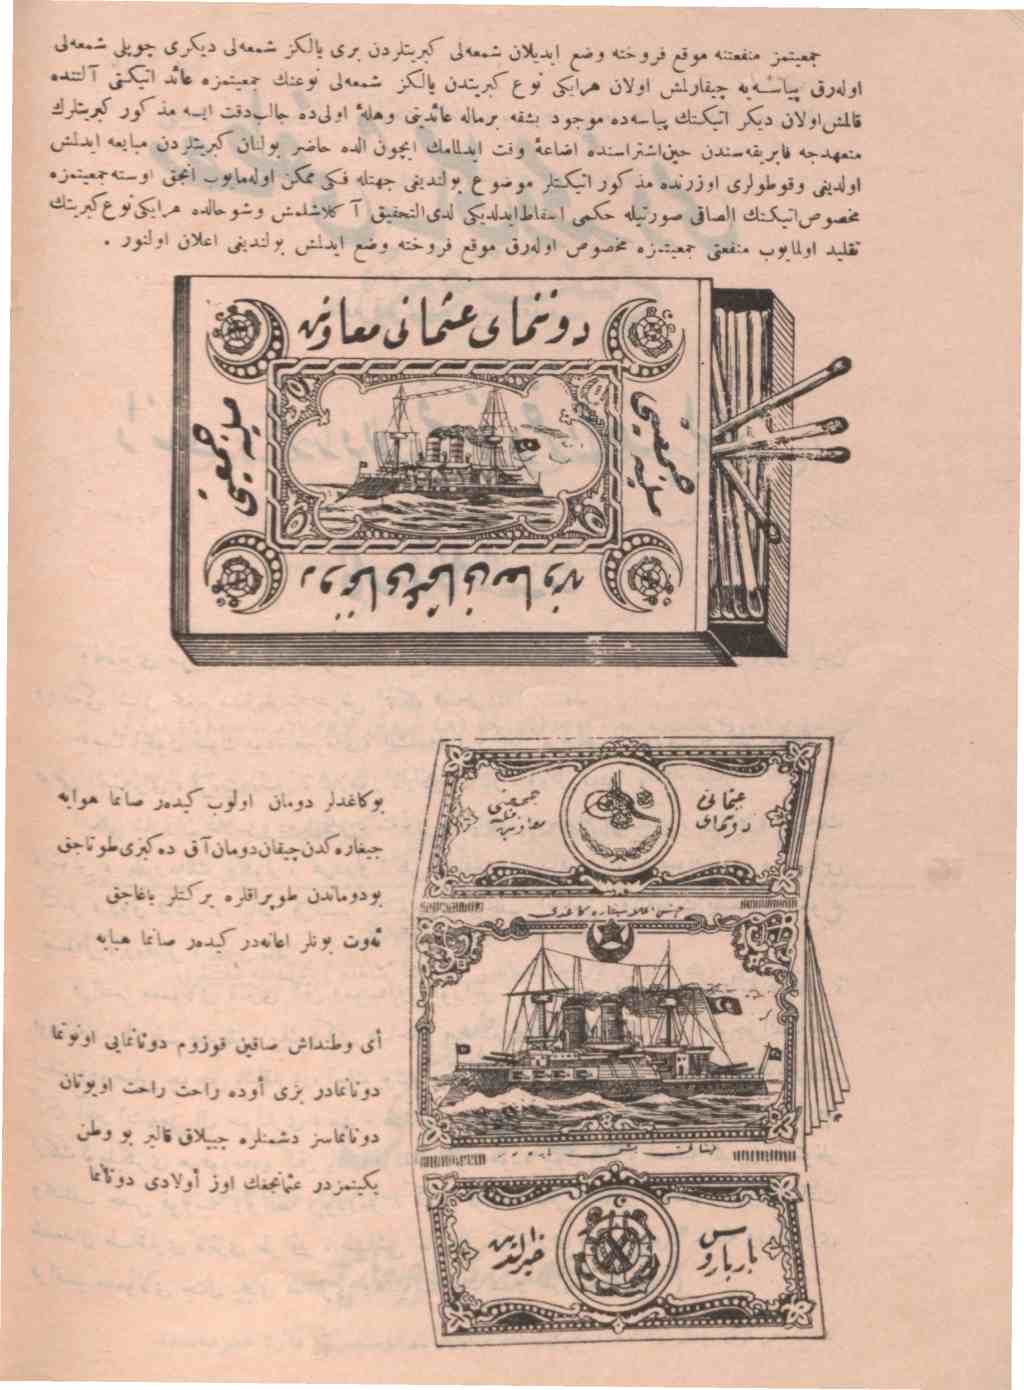 جمعیتمز منفعتنه موقع فروخته وضع ایدیلان شمعه‌لی کبریتلردن بری یالکز شمعه‌لی دیکری چوپلی شمعه‌لی
اوله‌رق پیاسه‌یه چیقارلمش اولان هرایکی نوع کبریتدن یالکز شمعه‌لی نوعنك جمعیتمزه عائد اتیکتی آلتنده
قالمش اولان دیکر اتیکتك پیاسه‌ده موجود بشقه برماله عائدیتی وهلهٔ اولی‌ده جالب‌دقت ایسه مذکور کبریتلرك
متعهدجه فابریقه‌سندن حین‌اشتراسنده اضاعهٔ وقت ایدلمامك ایچون الده حاضر بولنان کبریتلردن مبایعه ایدلمش
اولدیغی وقوطولری اوزرنده مذکور اتیکتلر موضوع بولندیغی جهتله فکی ممکن اوله‌مایوب آنجق اوسته جمعیتمزه
مخصوص اتیکتك الصاقی صورتیله حکمی اسقاط ایدلدیکی لدی‌التحقیق آکلاشلمش وشو حالده هرایکی نوع کبریتك
تقلید اولمایوب منفعتی جمعیتمزه مخصوص اوله‌رق موقع فروخته وضع ایدلمش بولندیغی اعلان اولنور .
دوننمای عثمانی معاونت
ملیه جمعیتی
ملیه جمعیتی
دوننمای عثمانی معاونت
عثمانی دوننمای
معاونت ملیه جمعیتی
بوکاغدلر دومان اولوب کیدەر صانما هوایه
جیغاره‌کدن چیقان دومان آق ده‌کزی طوتاجق
بودوماندن طوپراقلره برکتلر یاغاجق
ئه‌وت بونلر اعانه‌در کیدەر صانما هبایه
جنس اعلا سیغاره کاغدی
أی وطنداش صاقین قوزوم دونانمایی اونوتما
دونانمادر بزی أوده راحت راحت اویوتان
دونانماسز دشمنلره چیپلاق قالیر بو وطن
یکینمزدر عثمانجغك اوز أولادی دونانما
بارباروس
خیرالدین